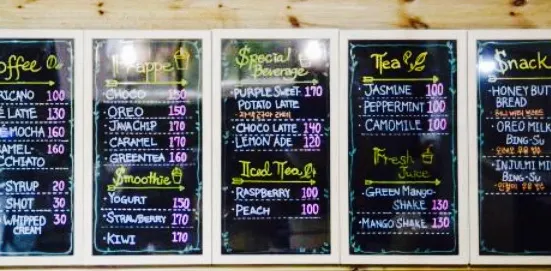 offee
RICANO 100
É LATTE 130
É MOCHA 160
AMEL 160
CCHIATO
SYRUP 20
SHOT 30
WHIPPED 30
CREAM
Frappe
CHOCO 150
OREO 150
JAVA CHIP 170
CARAMEL 170
GREENTEA 160
Smoothie
YOGURT 150
STRAWBERRY 170
KIWI 170
Special
Beverage
PURPLE SWEET 170
POTATO LATTE
자색고구마 라떼
CHOCO LATTE 140
LEMON ADE 120
Iced Tea
RASPBERRY 100
PEACH 100
Tea
JASMINE 100
PEPPERMINT 100
CAMOMILE 100
Fresh
Juice
GREEN MANGO
SHAKE 130
MANGO SHAKE 130
Snack
HONEY BUT
BREAD
허니 버터 브레드
OREO MILK
BING-SU
오레오 우유 빙수
INJULMI MI
BING-SU
인절미 우유 빙수